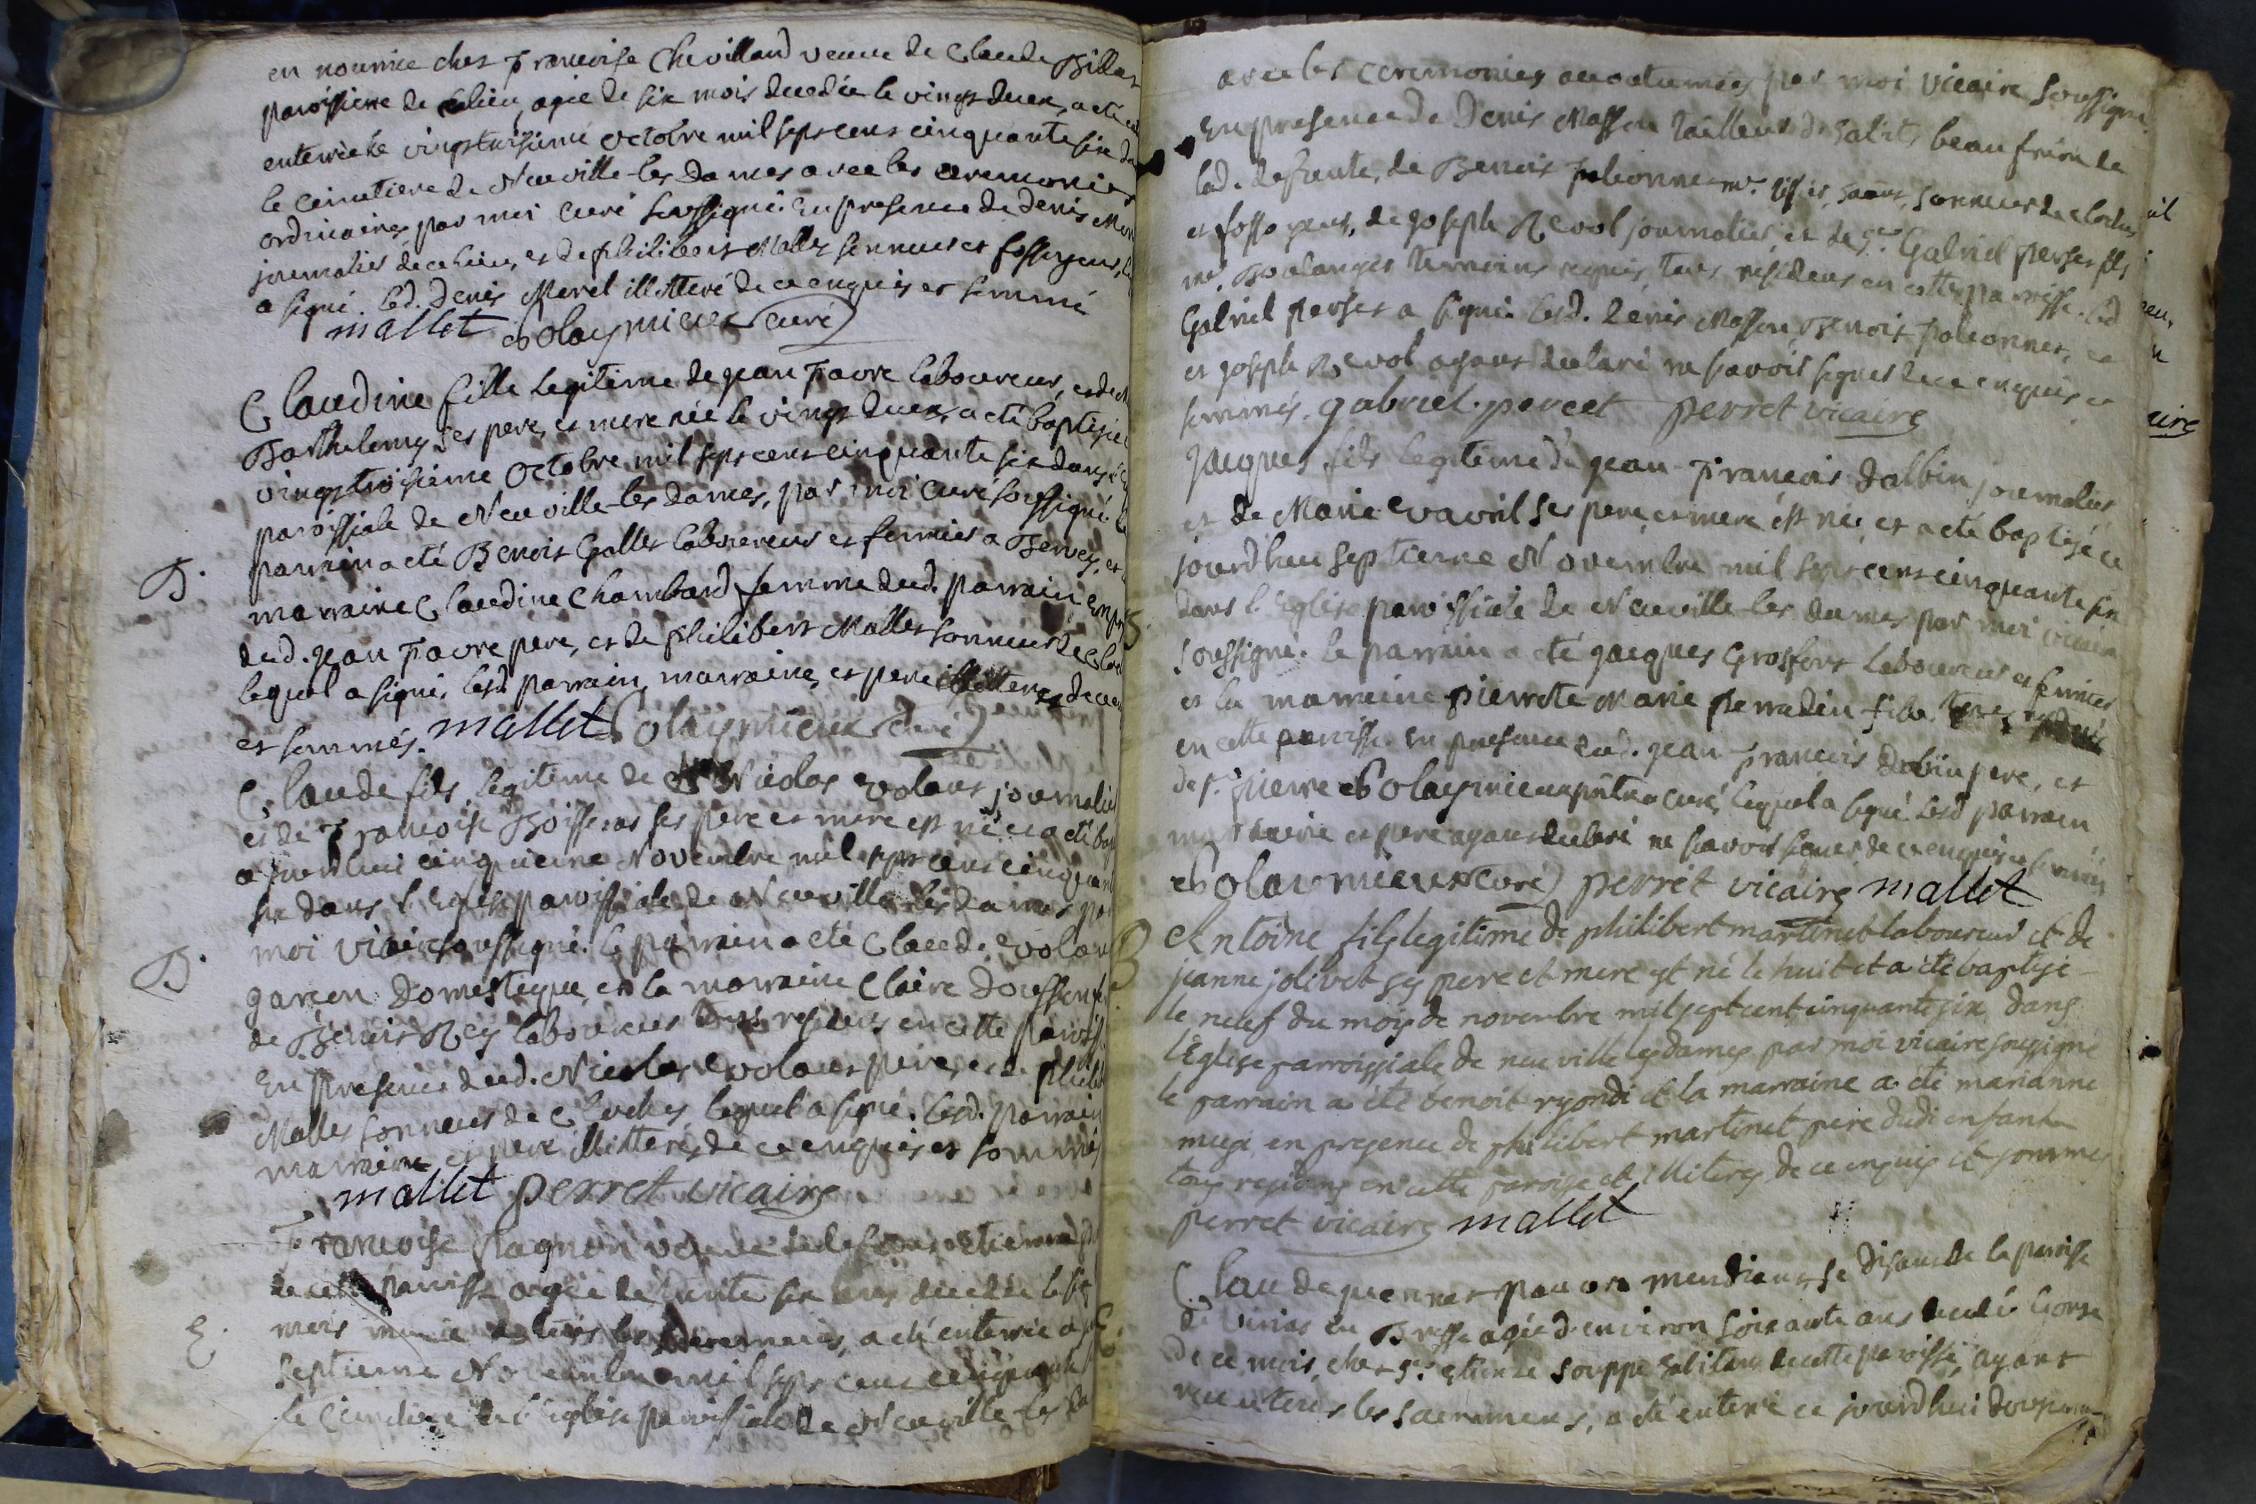 en nourrice chez Francoise Chevilland veuve de Claude Billet
paroissiene de ce lieu, agée de six mois decedée le vingt deux, a eté
enterrée le vingt troisieme octobre mil sept cens cinquante six
le cimetiere de Neuville-les Dames avec les ceremonies
ordinaires, par moi curé soussigné. En presence de Denis
journalier de ce lieu, et de philibert Mallet sonneur et fossoyeur,
a signé. led. Denis Morel illitteré de ce enquis et sommé
mallet Bolaymieux curé
Claudine fille legitime de jean Favre laboureur, et de
Barthelemy ses pere, et mere née le vingt deux, a eté baptizée
vingt troisieme octobre mil sept cens cinquante six dans
paroissiale de Neuville-les Dames, par moi curé soussigné. le
parrain a eté Benoit Gallet laboureur et fermier a Bevey, et
B.
marraine Claudine Chambard femme dud. parrain
dud. jean Favre pere, et de philibert Mallet sonneur de
lequel a signé, lesd. parrain, marraine, et pere illitteres de ce
et sommés. mallet Bolaymieux curé
Claude fils legitime de Nicolas Volant journalier
et de Francoise Boisseras ses pere et mere est né et a eté
aujourdhui cinquieme Novembre mil sept cens
six dans l'Eglise paroissiale de Neuville les Dames
moi vicaire soussigné. le parrain a eté Claude Volant
B.
garcon domestique et la marraine Claire
de Benoit Rey laboureur tous residens en cette
En presence dud. Nicolas Volant pere, et de
Mallet sonneur de Cloches lequel a signé. lesd. parrain
marraine et pere illitterés de ce enquis et sommés
mallet perret vicaire
Francoise pagnon veuve de defunt etienne
de cette paroisse agée de trente six ans decedée le
E.
mois munie de tous les Sacremens, a eté enterrée
septieme Novembre mil sept cens cinquante
le Cimetiere de l'eglise paroissiale de Neuville-les
avec les ceremonies accoutumées par moi vicaire soussigné.
En presence de Denis Masson tailleur d'habits beaufrere de
lad. defunte, de Benoit sonneur de cloches
et fossoyeur, de joseph Revol journalier, et de sr. Gabriel perset fils
me. Boulanger temoins requis, tous residens en cette paroisse. led
Gabriel perset a signé. lesd. Denis Masson, Benoit
et joseph Revol ayant declaré ne savoir signer de ce enquis et
sommés. gabriel. percet perret vicaire
Jacques fils legitime de jean-Francois Dalbin journalier
et de Marie ses pere et mere est né, et a eté baptizé ce
jourdhui septieme Novembre mil sept cens cinquante six
dans l'Eglise paroissiale de Neuville-les dames par moi vicaire
soussigné. le parrain a eté jacques Grosfort laboureur et fermier
et la marraine pierrete Marie perradin
en cette paroisse. En presence dud. jean-Francois Dalbin pere, et
de sr. pierre Bolaymieux pretre curé, lequel a signé. lesd. parrain
marraine et pere ayant declaré ne savoir signer de ce enquis et sommés
Bolaymieux curé perret vicaire mallet
B
Antoine fils legitime de philibert martinet laboureur et de
jeanne jolivet ses pere et mere est né le huit et a eté baptisé
le neuf du mois de novembre mil sept cent cinquante six dans
l'Eglise parroissiale de neuville les dames par moi vicaire soussigné
le parrain a eté benoit ryondi et la marraine a eté marianne
en presence de philibert martinet pere dudi enfant
tous residens en cette paroisse et illiteres de ce enquis et sommes
perret vicaire mallet
Claude mendiant se disant de la paroisse
E.
de en Bresse agé d'environ soixante ans decedé
de ce mois, chez sr. etienne souppe habitant de cette paroisse, ayant
receu tous les sacremens, a eté enterré ce jourdhui